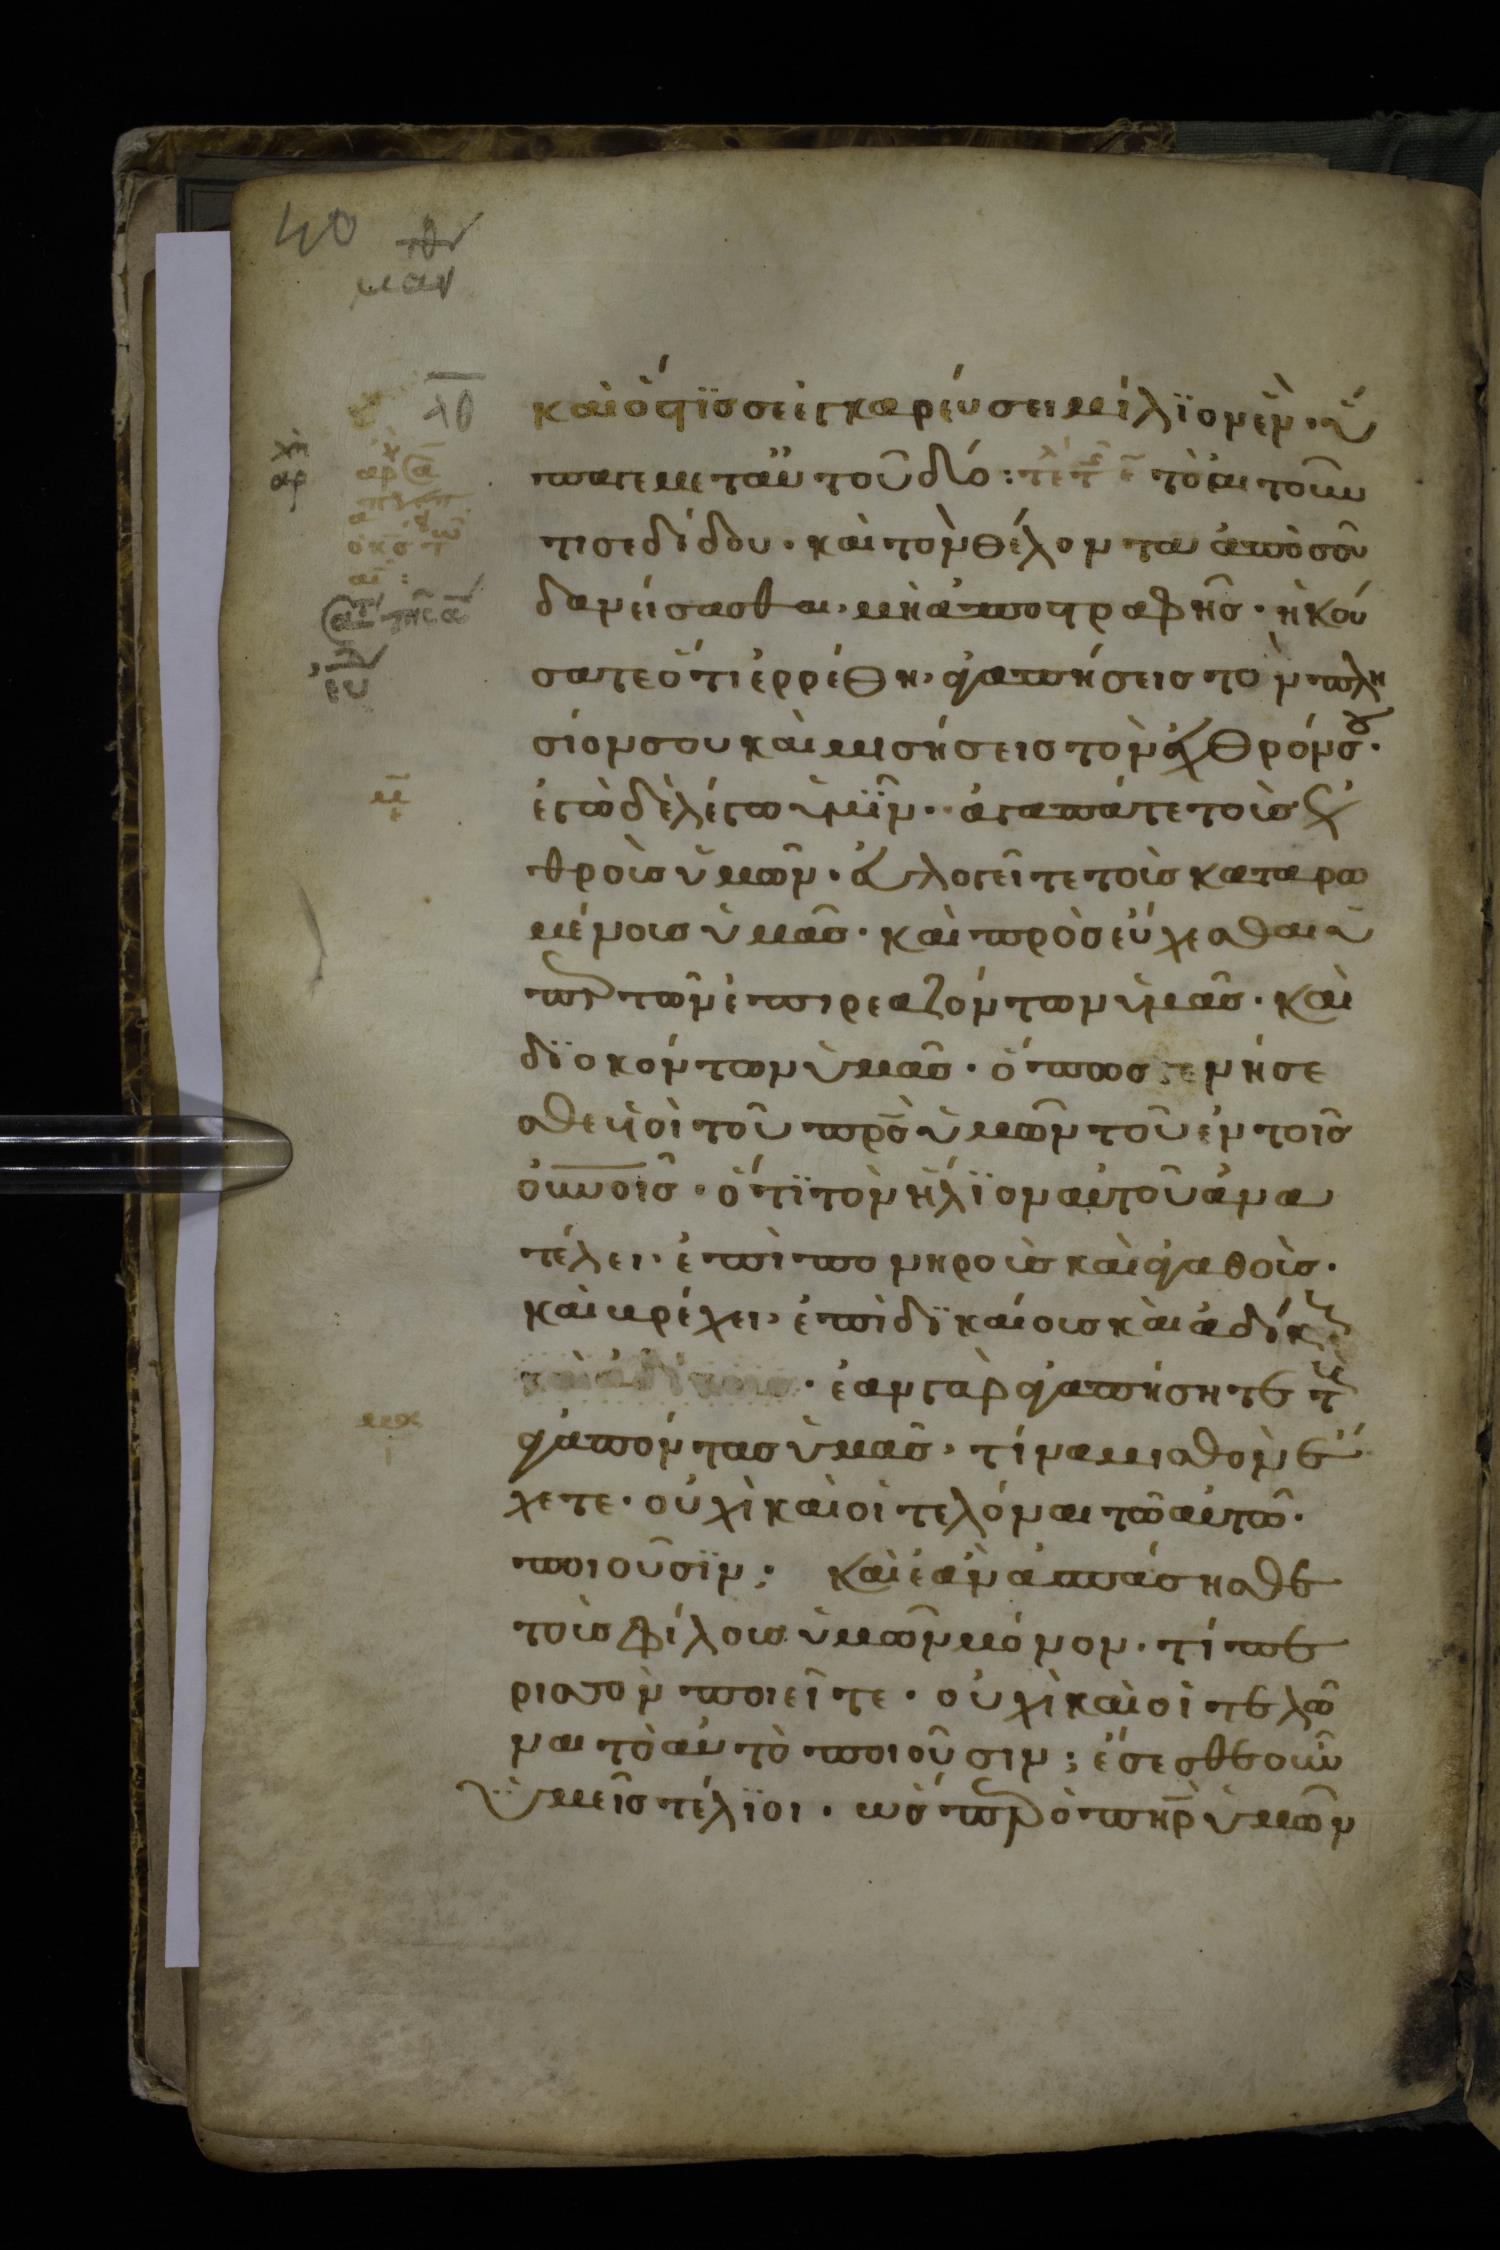 40
μαν
λθ
καὶ ὅστις σε ἐγγαρεύσει μίλϊον ἓν· ὕ
παγε μετ αὐτοῦ δύο: τε τῆς ε τὸ αἰτοῦν
τι σε δίδου· καὶ τὸν θέλοντα ἀπὸ σοῦ
δανείσασθαι, μὴ ἀποστραφῆς· ἠκού
σατε ὅτι ἐρρέθη, ἀγαπήσεις τὸν πλη
σίον σου καὶ μισήσεις τὸν ἐχθρόν σου·
ἐγὼ δὲ λέγω ὑμῖν· ἀγαπάτε τοὺς ἐχ
θροὺς ὑμῶν· εὐλογεῖτε τοὺς καταρω
μένους ὑμᾶς· καὶ πρὸσεύχεσθαι ὑ
πὲρ τῶν ἐπιρεαζόντων ὑμᾶς· καὶ
δϊοκόντων ὑμᾶς· ὅπως γενήσε
σθε υἱοὶ τοῦ πρς ὑμῶν τοῦ ἐν τοῖς
οὐνοις· ὅτϊ τὸν ἥλϊον αὐτοῦ ἀνα
τέλει, ἐπὶ πονηροὺς καὶ ἀγαθοὺς·
καὶ βρέχει, ἐπὶ δϊκαίους καὶ ἀδίκους
καὶ ἀδίκους· ἐὰν γὰρ ἀγαπήσητε τοὺς
ἀγαπόντας ὑμᾶς, τίνα μισθὸν ἔ
χετε· οὐχὶ καὶ οἱ τελόναι τῶ αὐτῶ·
ποιοῦσϊν; καὶ ἐὰν ἀσπάσησθε
τοὺς φίλους ὑμῶν μόνον· τί πε
ρισσὸν ποιεῖτε· οὐχὶ καὶ οἱ τελῶ
ναι τὸ αὐτὸ ποιοῦσιν; ἔσεσθε οὖν
ὑμεῖς τέλϊοι· ὡσπερ ὁ πηρ ὑμῶν